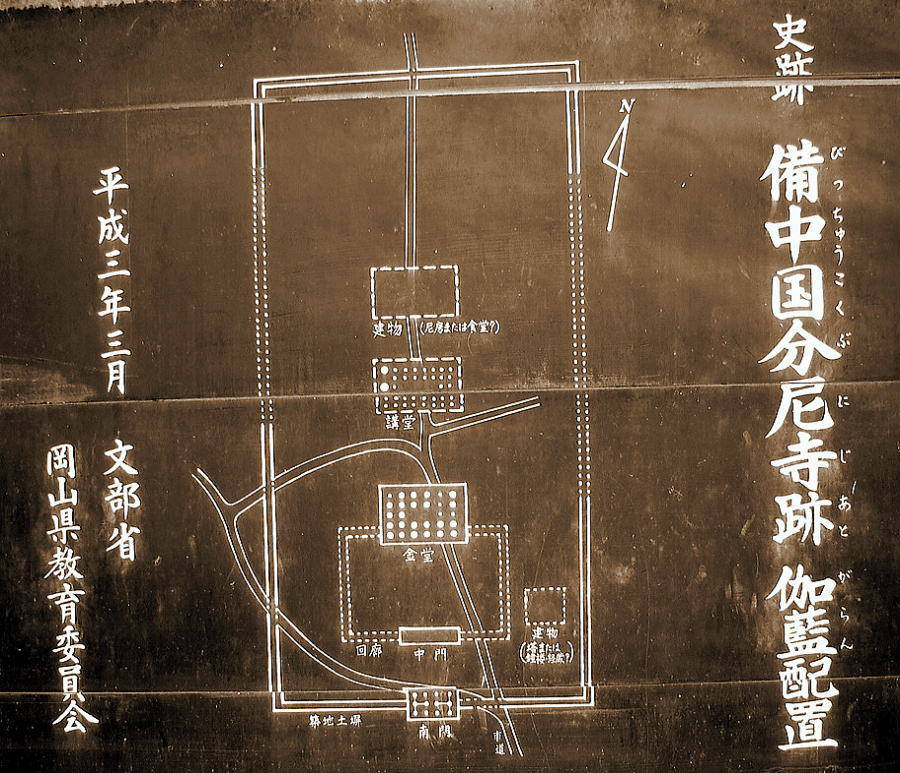 史跡 備中国分尼寺跡 伽藍配置
びっちゅうこくぶにじあと がらん
N
建物(尼房または食堂?)
講堂
金堂
建物
(塔または
鐘楼・経蔵?)
回廊
中門
築地土塀
南門
市道
平成三年三月
文部省
岡山県教育委員会